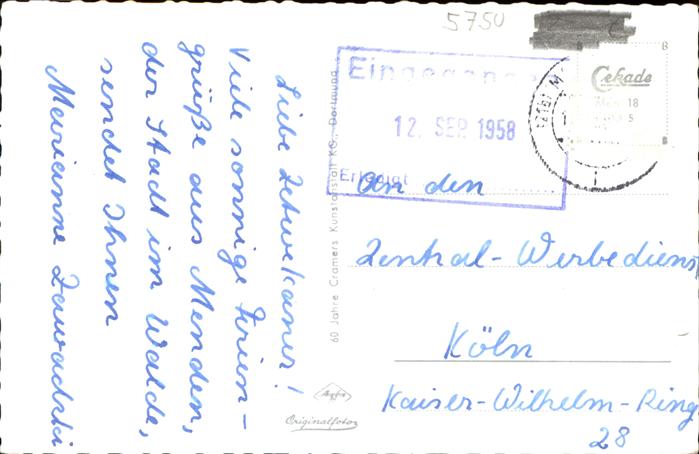 5750
Liebe Zetwekaner!
Viele sonnige Ferien-
grüße aus Menden,
der Stadt im Walde,
sendet Ihnen
Marianne Zawadski
60 Jahre Cramers Kunstanstalt KG., Dortmund
Agfa
Originalfotos
Eingegangen
12. SEP. 1958
Erledigt
Cekade
B
B
B
Men 18
5
(21b) M
An den
Zentral-Werbedienst
Köln
Kaiser-Wilhelm-Ring
28